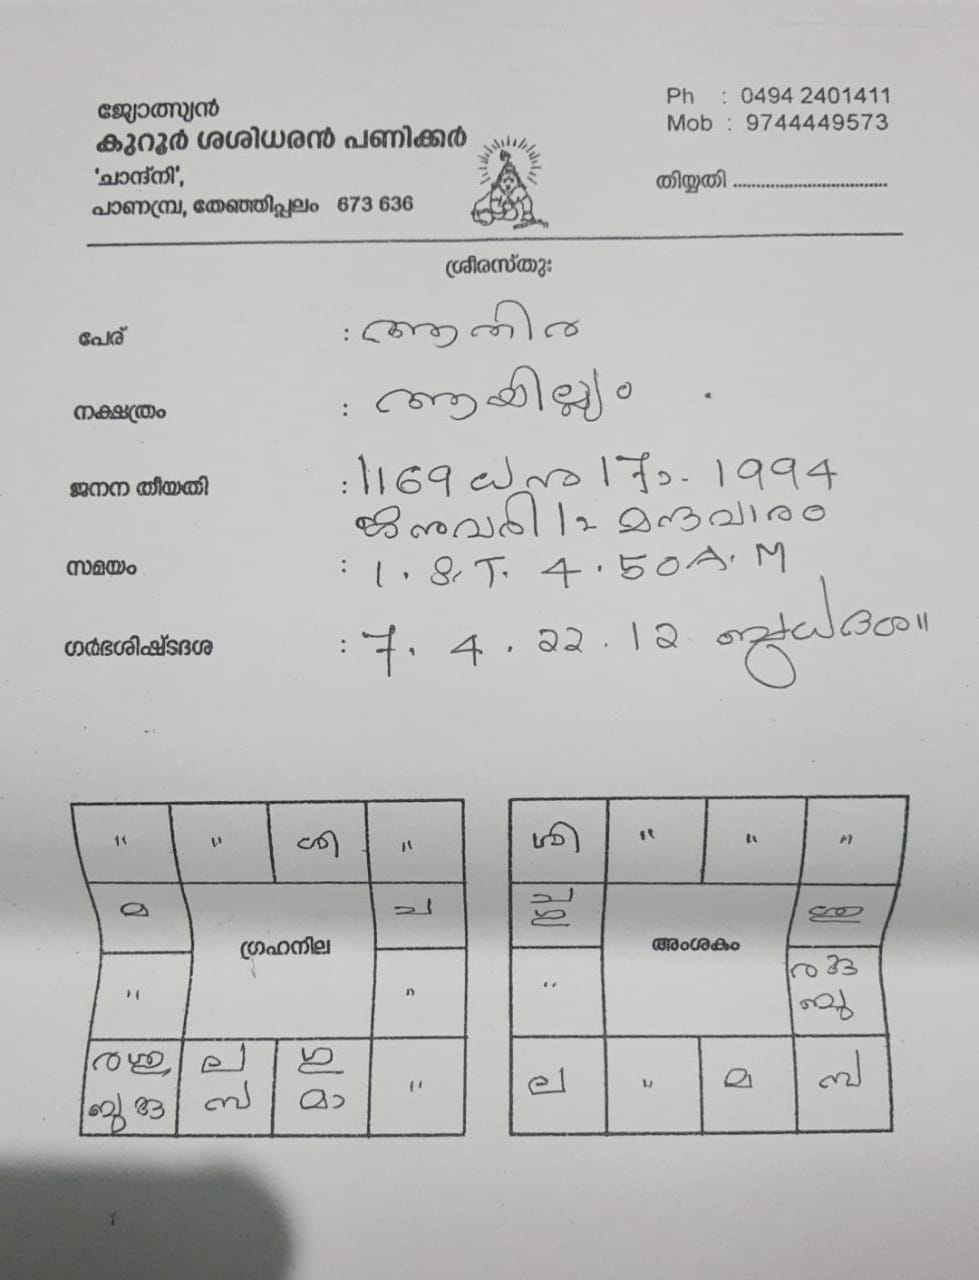 ജ്യോത്സ്യൻ
കുറൂർ ശശിധരൻ പണിക്കർ
'ചാന്ദ്നി',
പാണമ്പ്ര, തേഞ്ഞിപ്പലം 673 636
Ph : 0494 2401411
Mob : 9744449573
തിയ്യതി ................................
ശ്രീരസ്തുഃ
പേര് : ആതിര
നക്ഷത്രം : ആയില്ല്യം
ജനന തീയതി : 1169 ധനു 17ാ. 1994
ജനുവരി 1൹ മന്ദവാരം
സമയം : I.S.T. 4.50 A.M
ഗർഭശിഷ്ടദശ : 7. 4. 22. 12 ബുധദശ॥
" " ശി "
മ ച
ഗ്രഹനില
" "
ര ശു ല ഗു "
ബു കു സ മാ
ശി " " "
അംശകം
" ര കു
ബു
ല " മ സ